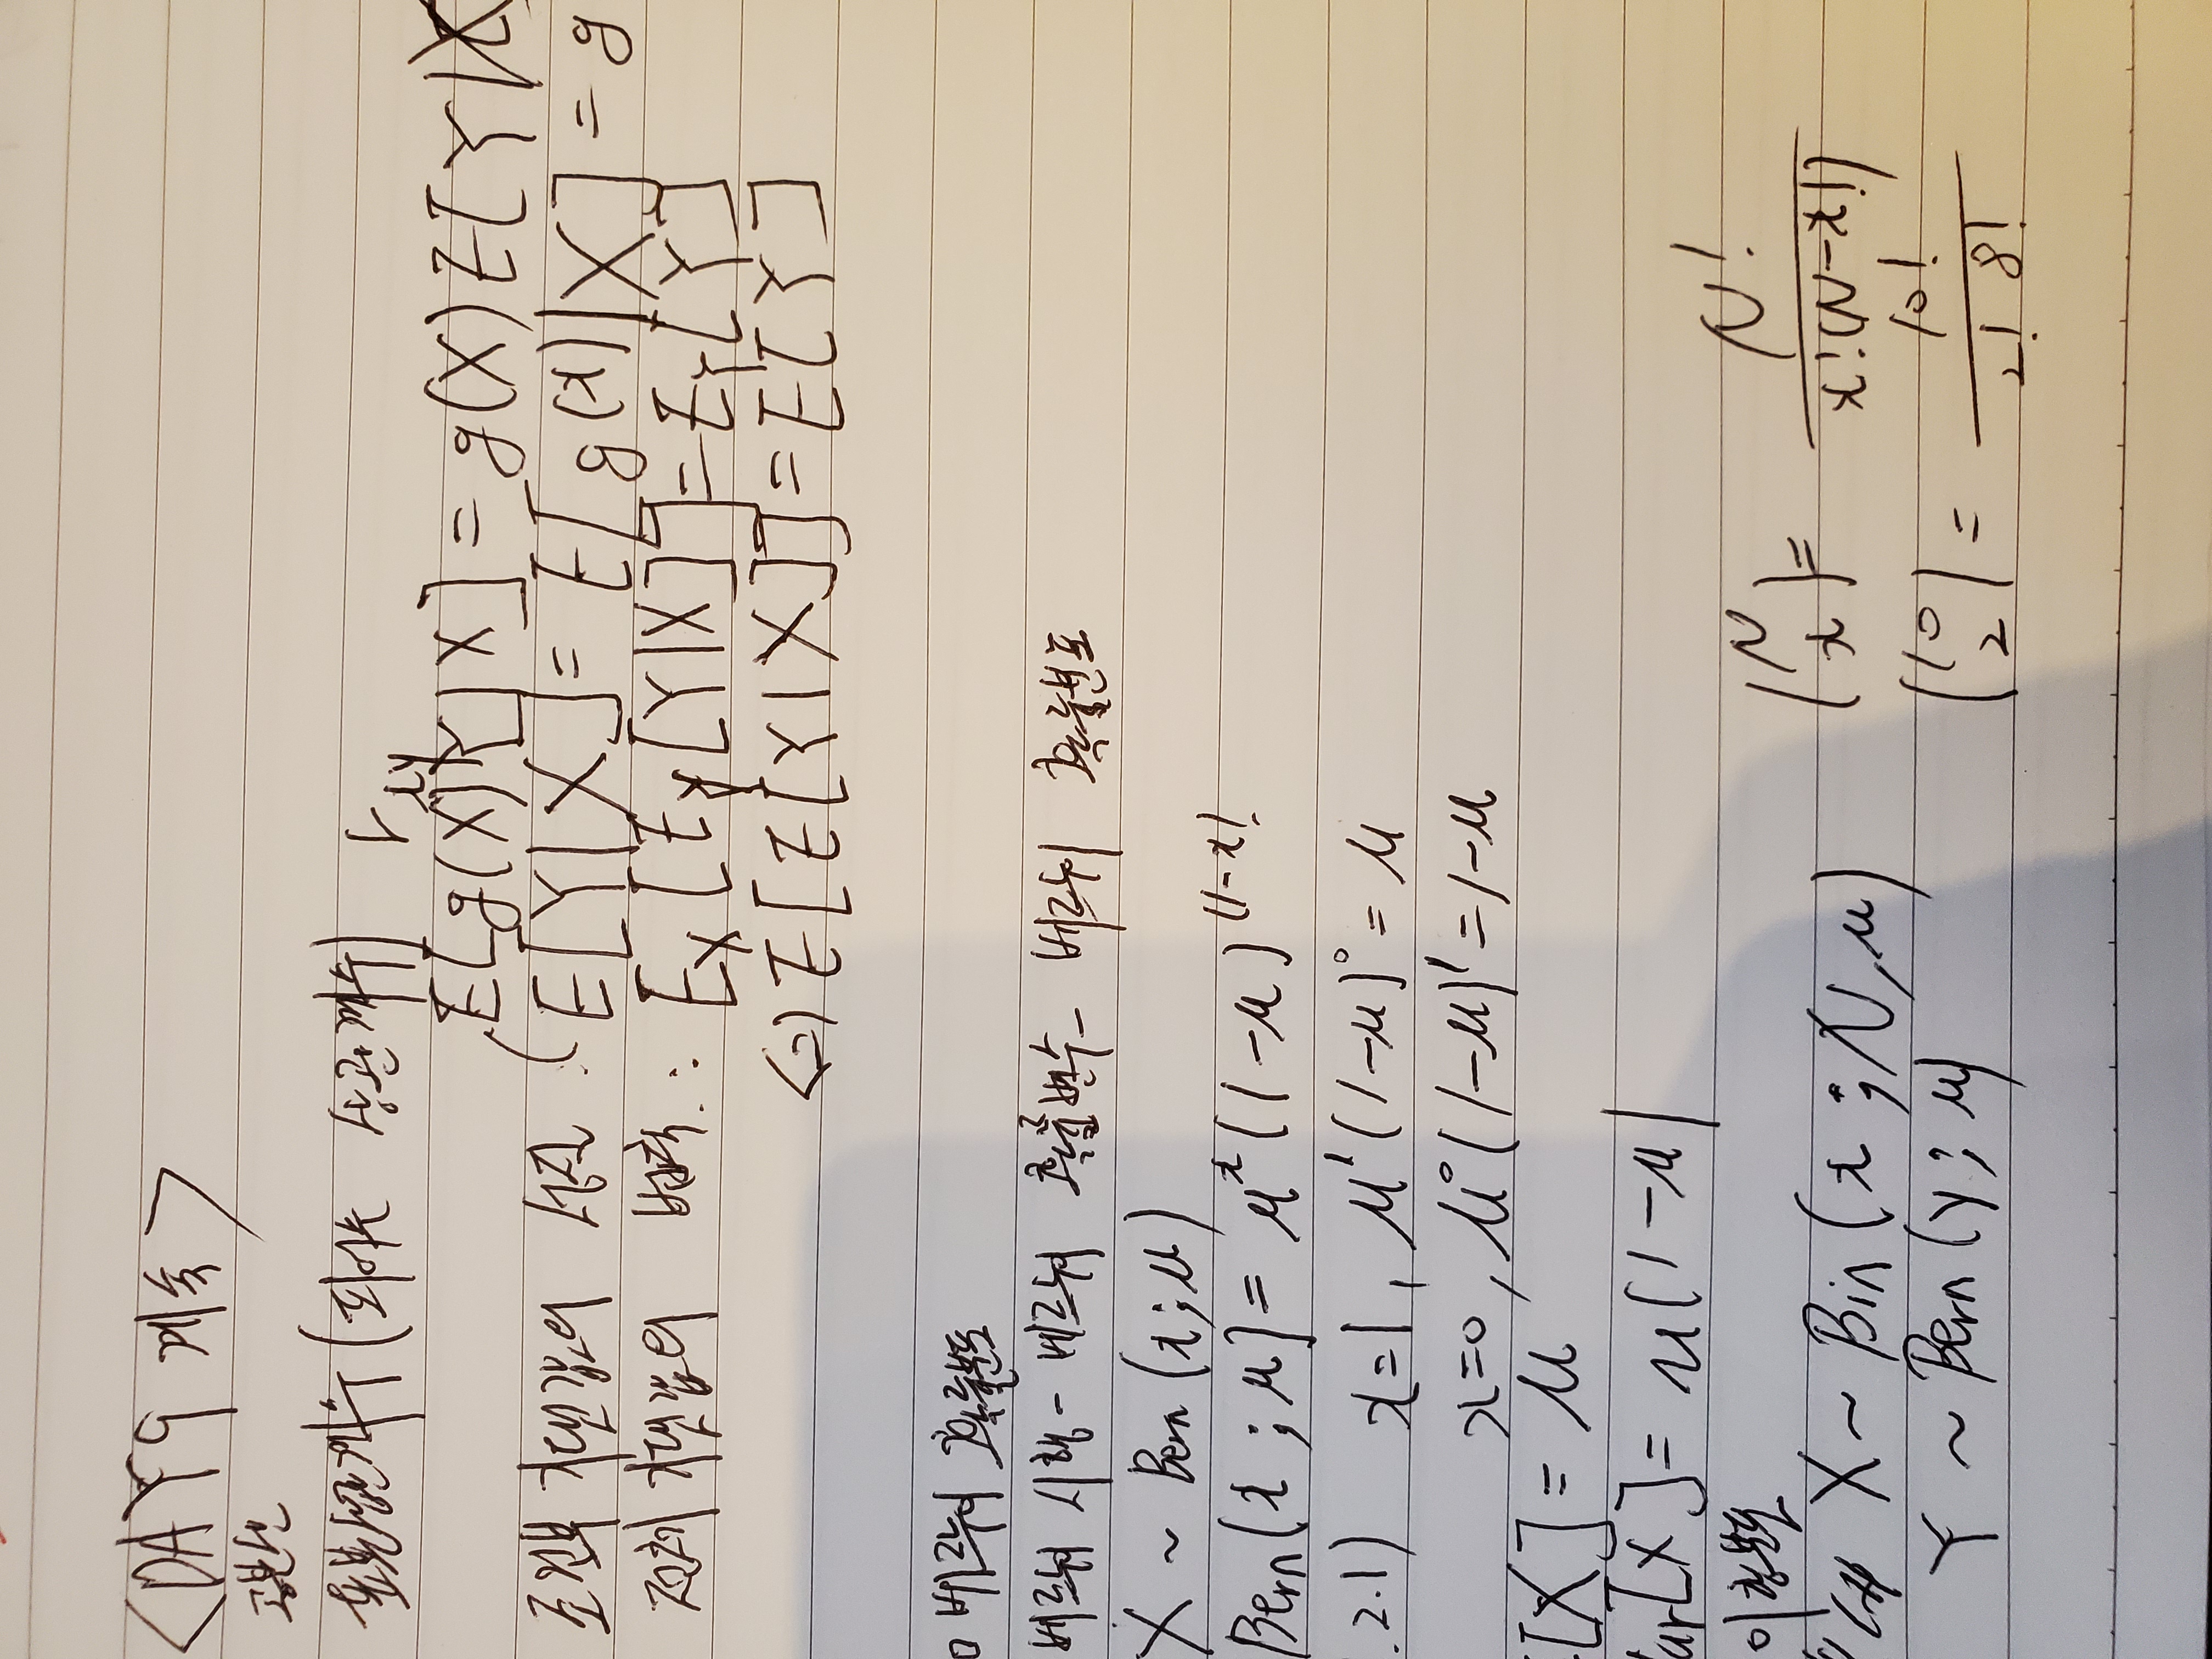 <DAY9 계속>
공분산
표본상관계수 (피어슨 상관계수) r xy
E[g(X)Y|X] = g(X)E[Y|X
조건부 기댓값의 성질 : ( E[Y|X] = E[g(x)|X] = g
전체 기댓값의 법칙 : E_X[E_Y[Y|X]] = E_Y[Y]
<=> E[E[Y|X]] = E[Y]
베르누이 확률분포
베르누이 시행 - 베르누이 확률변수 - 베르누이 확률분포
X ~ Bern(x;μ)
Bern(x;μ) = μ^x(1-μ)^(1-x)
.2.1) x=1, μ¹(1-μ)⁰ = μ
x=0, μ⁰(1-μ)¹ = 1-μ
[X] = μ
ar[X] = μ(1-μ)
이항분포
X ~ Bin(x;N,μ)
(N x) = N! / x!(N-x!)
Y ~ Bern(y;μ)
(10 2) = 10! / 2! 8!